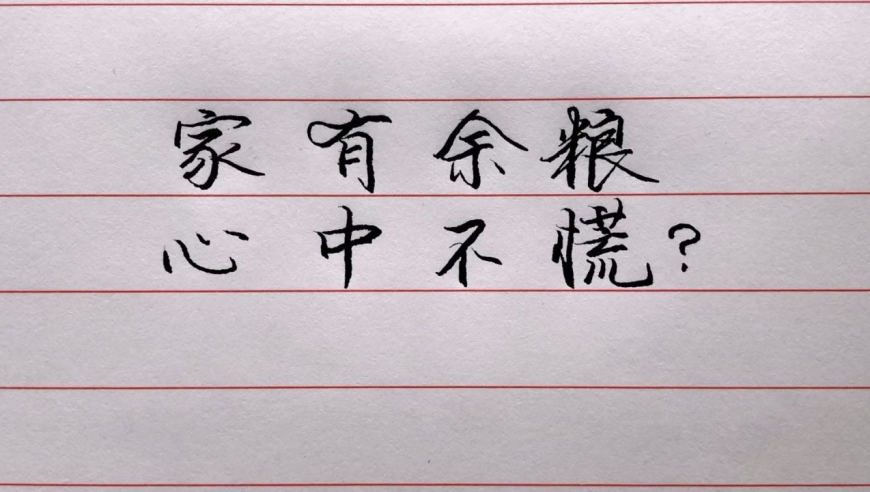 家有余粮
心中不慌?